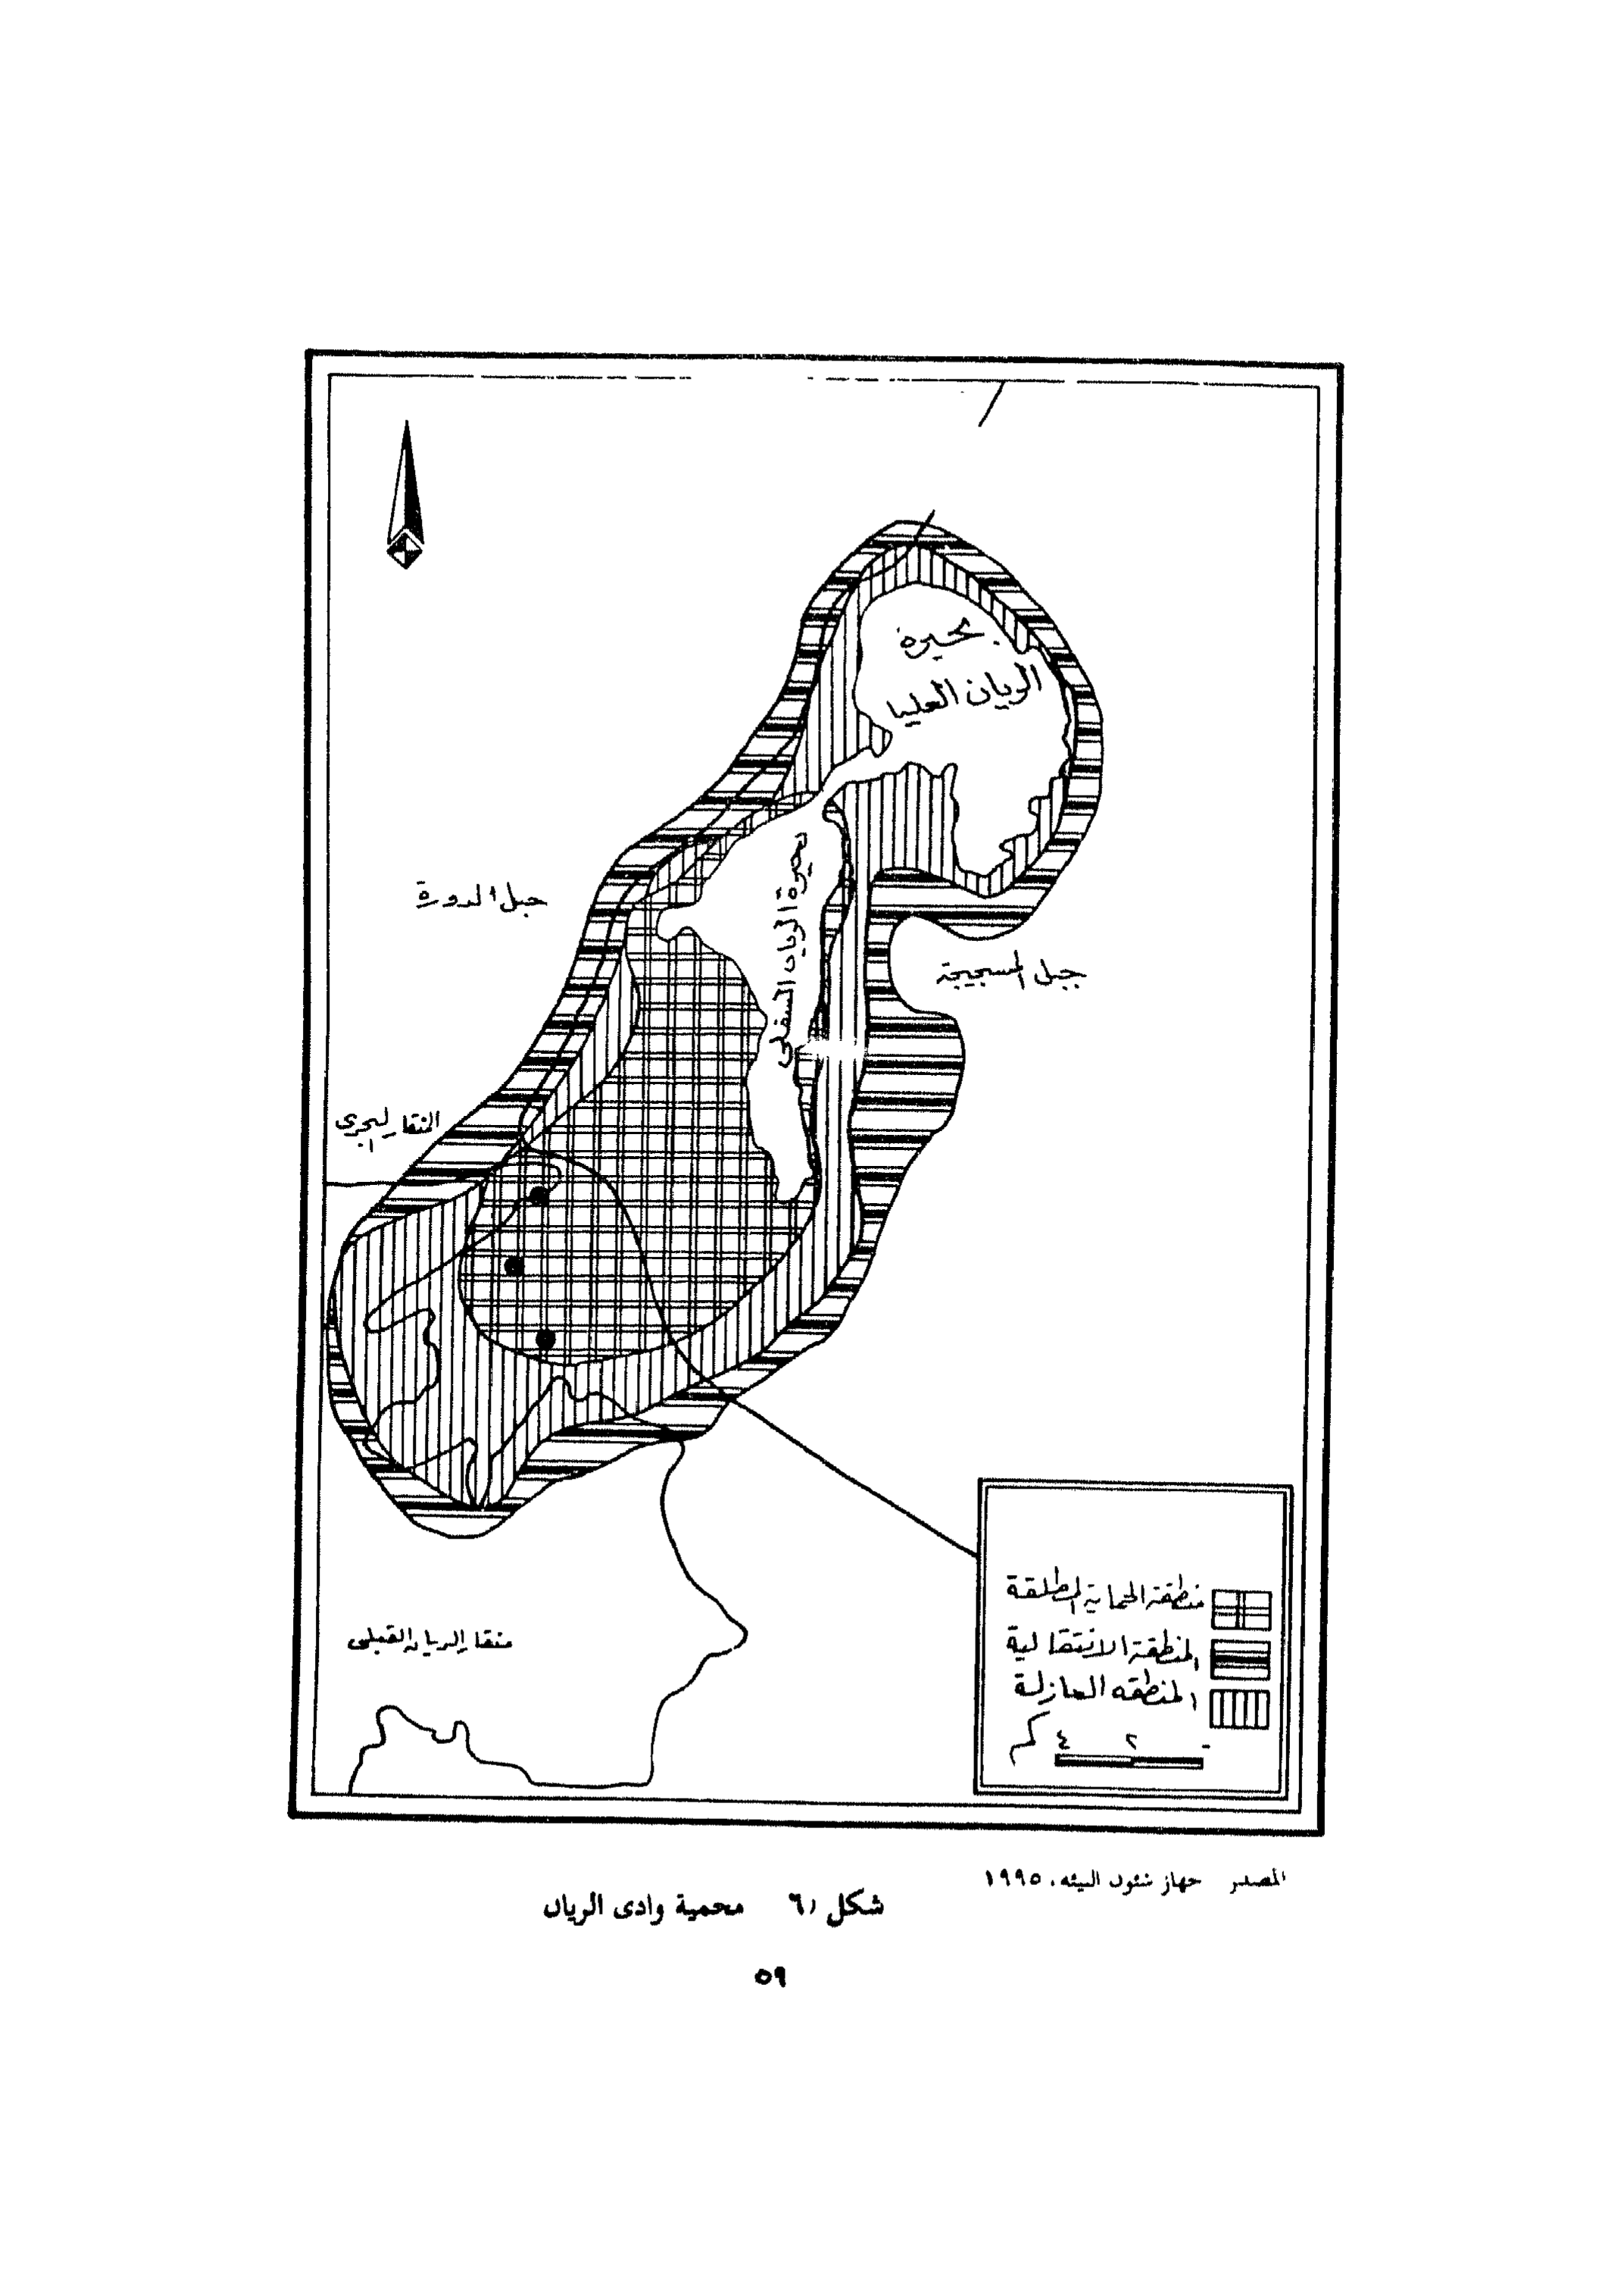 بحيرة
الريان العليا
بحيرة الريان السفلى
جبل الدورة
جبل المسجيجة
النقار البحرى
منقار الريان القبلى
منطقة الحماية المطلقة
المنطقة الانتقالية
المنطقه العازلة
٢ ٤ كم
المصدر جهاز شئون البيئه، ١٩٩٥
شكل ٦ محمية وادى الريان
٥٩